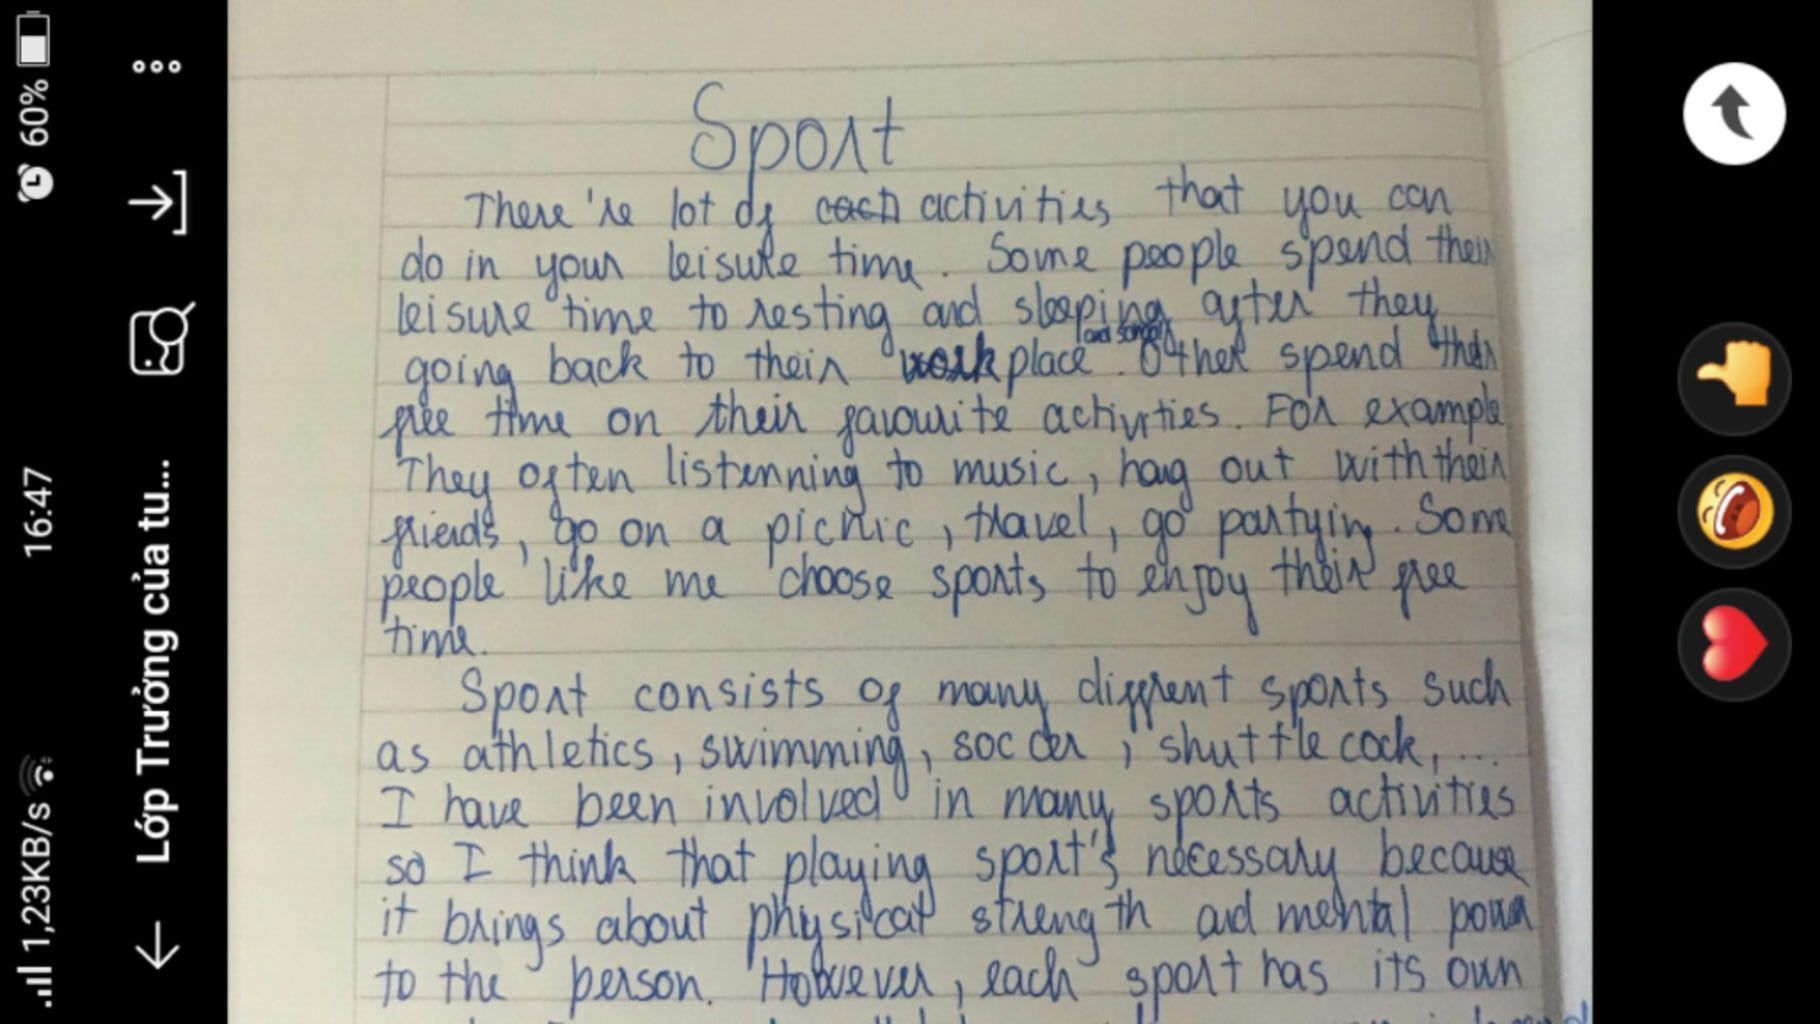 60%
16:47
1,23KB/s
Lớp Trưởng của tu...
Sport
There're lot of activities that you can
do in your leisure time. Some people spend their
leisure time to resting and sleeping after they
going back to their workplace. Other spend their
free time on their favourite activities. For example
They often listenning to music, hag out with their
friends, go on a picnic, travel, go partying. Some
people like me choose sports to enjoy their free
time.
Sport consists of many diffrent sports such
as athletics, swimming, soccer, shuttle cock, ...
I have been involved in many sports activities
so I think that playing sport's necessary because
it brings about physical strength and mental power
to the person. However, each sport has its own